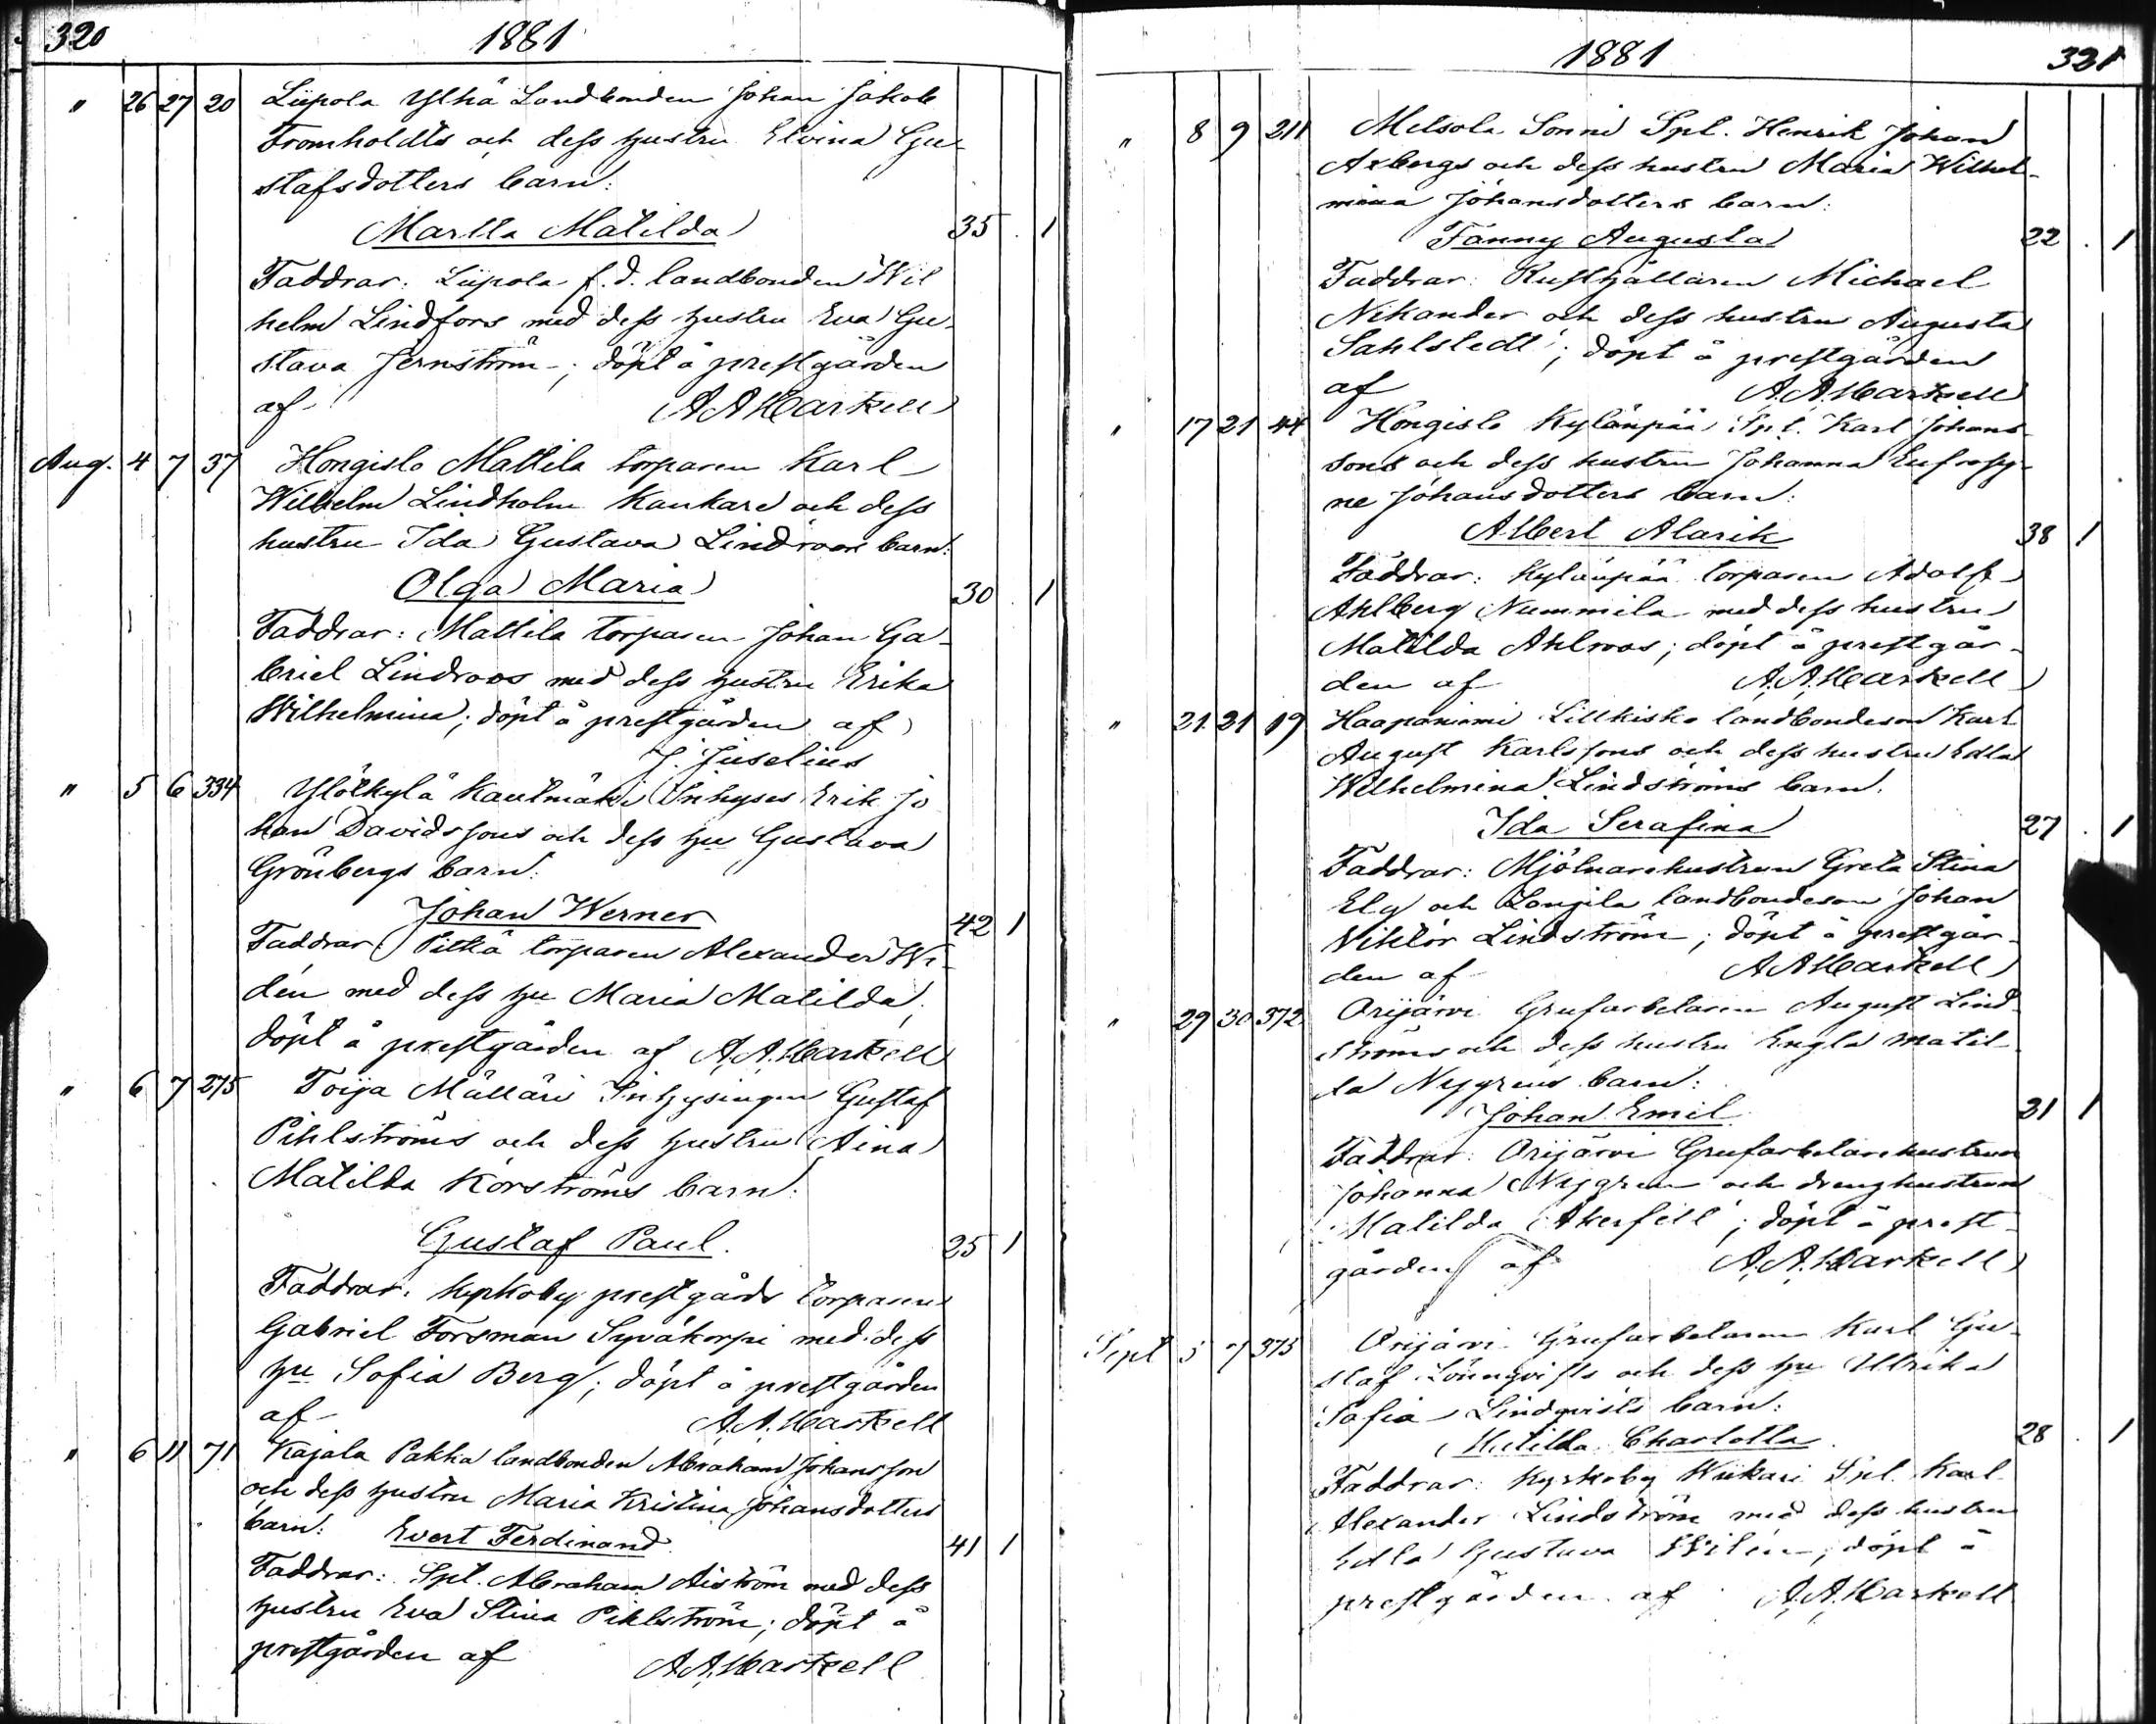 320 1881
" 26 27 20 Liipola Yлhä Landbonden Johan Jakob
Fromholdts och dess hustru Elvina Gu-
stafsdotters barn:
Martta Matilda 35 1
Faddrar: Liipola f.d. landbonden Wil
helm Lindfors med dess hustru Eva Gu-
stava Jernström; döpt å prestgården
af A.A. Markell
Aug. 4 7 37 Hongisto Mattila torparen Karl
Wilhelm Lindholm Kankare och dess
hustru Ida Gustava Lindroos barn:
Olga Maria 30 1
Faddrar: Mattila torparen Johan Ga-
briel Lindroos med dess hustru Erika
Wilhelmina; döpt å prestgården af
J. Juselius
" 5 6 334 Ylökylä Kautmäki Inhyses Erik Jo
han Davidssons och dess hu Gustava
Grönbergs barn:
Johan Werner 42 1
Faddrar: Pitkä torparen Alexander Wi-
dén med dess hu Maria Matilda;
döpt å prestgården af A.A. Markell
" 6 7 275 Toija Mälläri Inhysingen Gustaf
Pihlströms och dess hustru Aina
Matilda Korströms barn:
Gustaf Paul. 25 1
Faddrar: Kyrkoby prestgårds torparen
Gabriel Forsman Syväkorpi med dess
hu Sofia Berg; döpt å prestgården
af A.A. Markell
" 6 11 71 Kajala Pakka landbonden Abraham Johansson
och dess hustru Maria Kristina Johansdotters
barn: Evert Ferdinand 41 1
Faddrar: Spl. Abraham Aiström med dess
hustru Eva Stina Pihlström; döpt å
prestgården af A.A. Markell
1881 321
" 8 9 211 Melsola Sonni Spl. Henrik Johan
Axbergs och dess hustru Maria Wilhel-
mina Johansdotters barn:
Fanny Augusta 22 1
Faddrar: Rusthållaren Michael
Nikander och dess hustru Augusta
Sahlstedt; döpt å prestgården
af A.A. Markell
" 17 21 44 Hongisto Kylänpää Spl. Karl Johans-
sons och dess hustru Johanna Eufrosy-
ne Johansdotters barn:
Albert Alarik 38 1
Faddrar: Kylänpää torparen Adolf
Ahlberg Nummila med dess hustru
Matilda Ahlroos; döpt å prestgår-
den af A.A. Markell
" 21 21 19 Haapaniemi Lillkisko landbondeson Karl
August Karlssons och dess hustru Edla
Wilhelmina Lindströms barn.
Ida Serafina 27 1
Faddrar: Mjölnarehustrun Greta Stina
Elg och landbondeson Johan
Viktor Lindström; döpt å prestgår-
den af A.A. Markell
" 29 30 372 Orijärvi Grufarbetaren August Lind-
ströms och dess hustru Engla Matil-
da Nygrens barn:
Johan Emil 31 1
Faddrar: Orijärvi Grufarbetarehustrun
Johanna Nygren och drenghustrun
Matilda Åkerfelt; döpt å prest-
gården af A.A. Markell
Sept 5 7 375 Orijärvi Grufarbetaren Karl Gu-
staf Lönnqvists och dess hu Ulrika
Sofia Lindqvists barn:
Matilda Charlotta 28 1
Faddrar: Kyrkoby Wiikari Spl. Karl
Alexander Lindström med dess hustru
Edla Gustava Wilén; döpt å
prestgården af A.A. Markell